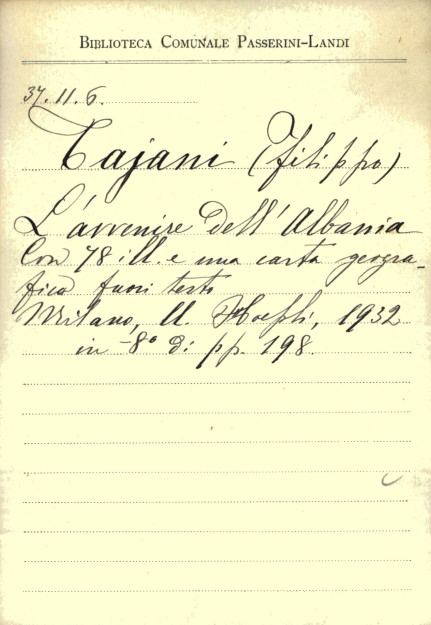 BIBLIOTECA COMUNALE PASSERINI-LANDI
37.11.6.
Tajani (Filippo)
L'avvenire dell'Albania
Con 78 ill. e una carta geogra-
fica fuori testo
Milano, U. Hoepli, 1932
in-8° di pp. 198.